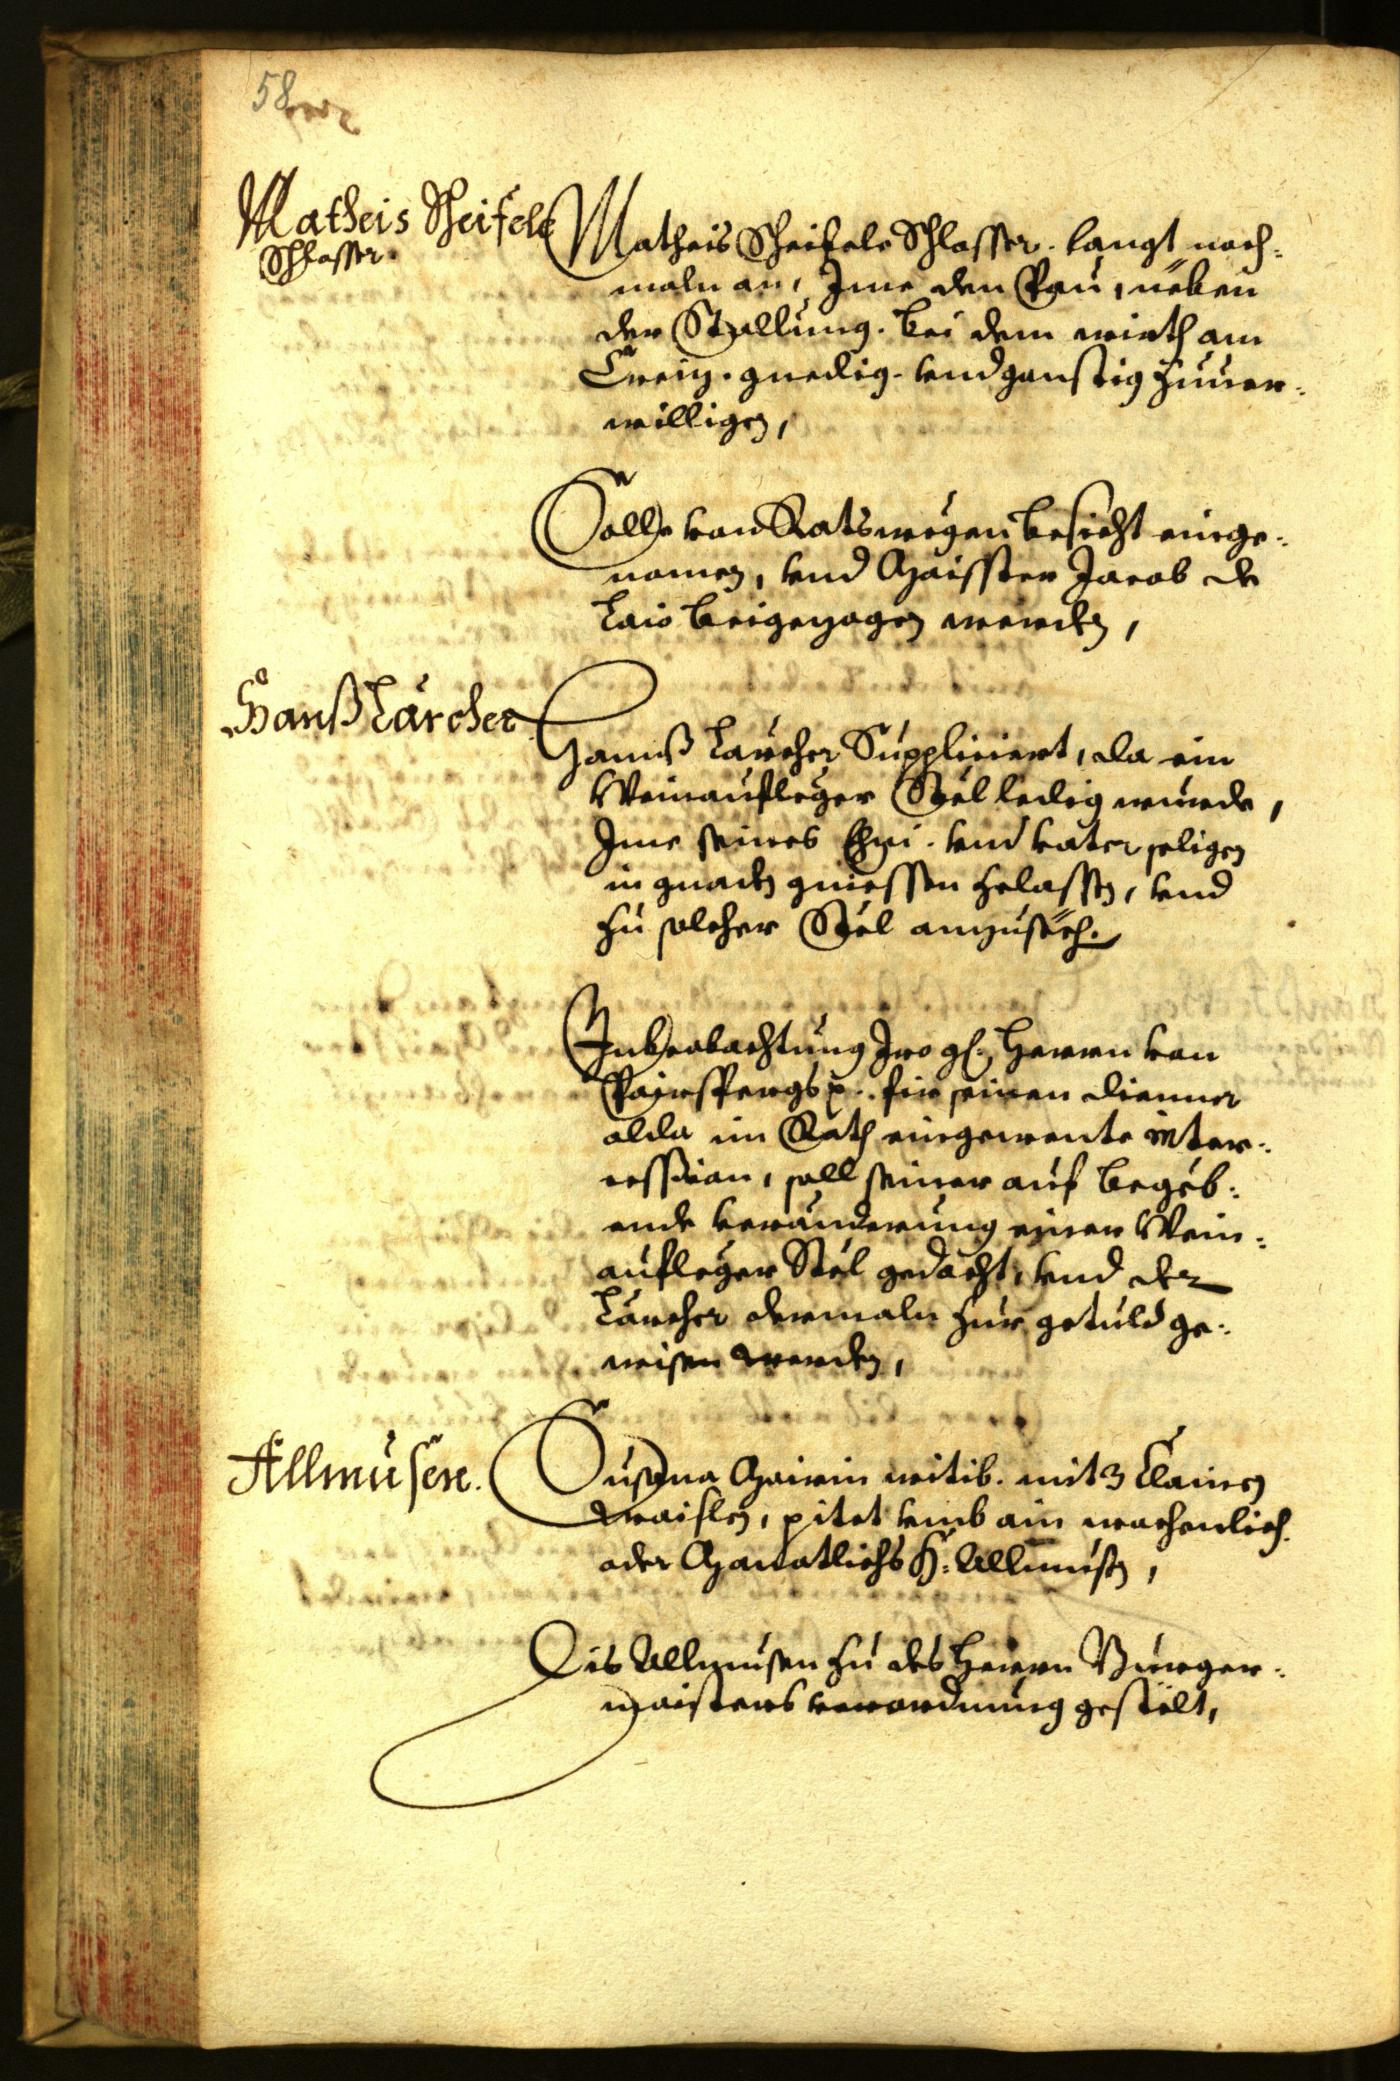 58
Matheis Scheifele
Schlosser.
Matheis Scheifele Schlosser. langt noch-
maln an, Ime den Pau, neben
der Stallung. bei dem wirth am
Creiz. gnedig. vnd gonstig zuuer-
willigen,
Solle von Rats wegen besicht einge-
nomen, vnd Maisster Jacob de
Laio beigezogen werden,
Hanß Larcher
Hannß Larcher Suppliciert, da ein
Weinaufleger Stel ledig wurde,
Ime seines Eni. vnd vater seligen
in gnaden gniessen zelassen, vnd
zu solcher Stel anzusech.
In beobachtung Iro gl. Herrn von
Pairspergs fir seinen dienner
alda im Rath eingewente inter-
cession, soll seiner auf begeb-
ende veränderung einer Wein-
aufleger Stel gedacht, vnd der
Larcher dermaln zur getuld ge-
wisen werden,
Allmusen.
Susana Mairin witib. mit 3 Clainen
waislen, pitet vmb ain wochenlich.
oder Monatlichs H: Allmusen,
Dis Allmusen zu des Herrn Burger-
maisters verordnung gestelt,